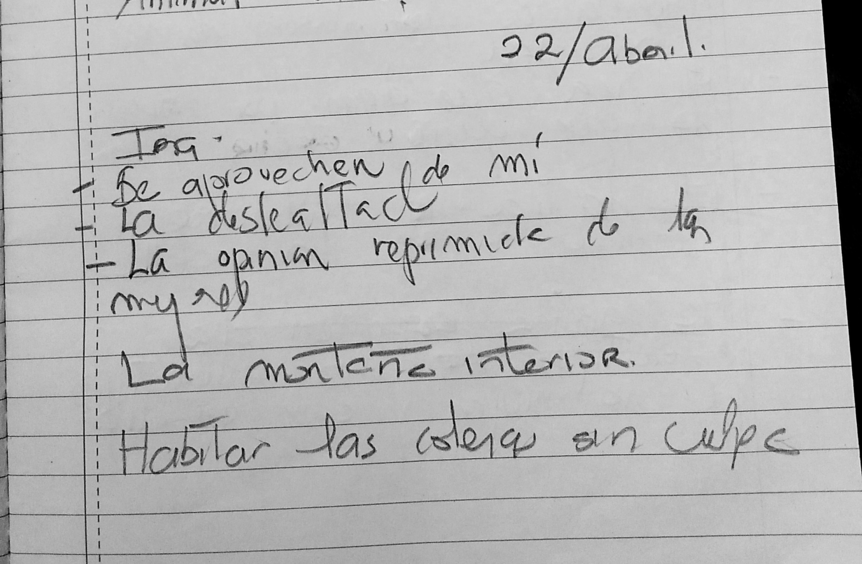 22/Abril.
Ira.
- Se aprovechen de mí
- La deslealtad
- La opinion reprimida de las
mujeres
La montaña interior.
Habitar las coleras sin culpa